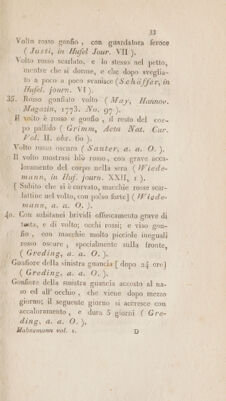 33
Volto rosso gonfio, con guardatura feroce
( Justi, in Hufel Jour. VII ).
Volto rosso scarlato, e lo stesso nel petto,
mentre che si dorme, e che dopo sveglia-
to a poco a poco svanisce (Schäffer, in
Hufel. journ. VI ).
35. Rosso gonfiato volto ( May, Hannov.
Magazin, 1773. No. 97 ).
Il volto è rosso e gonfio, il resto del cor-
po pallido ( Grimm, Acta Nat. Cur.
Vol. II. obr. 60 ).
Volto rosso oscuro ( Sauter, a. a. O. ).
Il volto mostrasi blò rosso, con grave acca-
loramento del corpo nella sera ( Wiede-
mann, in Huf. journ. XXII, 1 ).
[ Subito che si è curvato, macchie rosse scar-
lattine nel volto, con polso forte] ( Wiede-
mann, a. a. O. ).
40. Con subitanei brividi offuscamento grave di
testa, e di volto; occhi rossi; e viso gon-
fio, con macchie molto picciole ineguali
rosso oscure, specialmente sulla fronte,
( Greding, a. a. O. ).
Gonfiore della sinistra guancia [ dopo 24 ore]
( Greding, a. a. O. ).
Gonfiore della sinistra guancia accosto al na-
so ed all' occhio, che viene dopo mezzo
giorno; il seguente giorno si accresce con
accaloramento, e dura 5 giorni ( Gre-
ding, a. a. O. ).
Hahnemann vol. 1. D